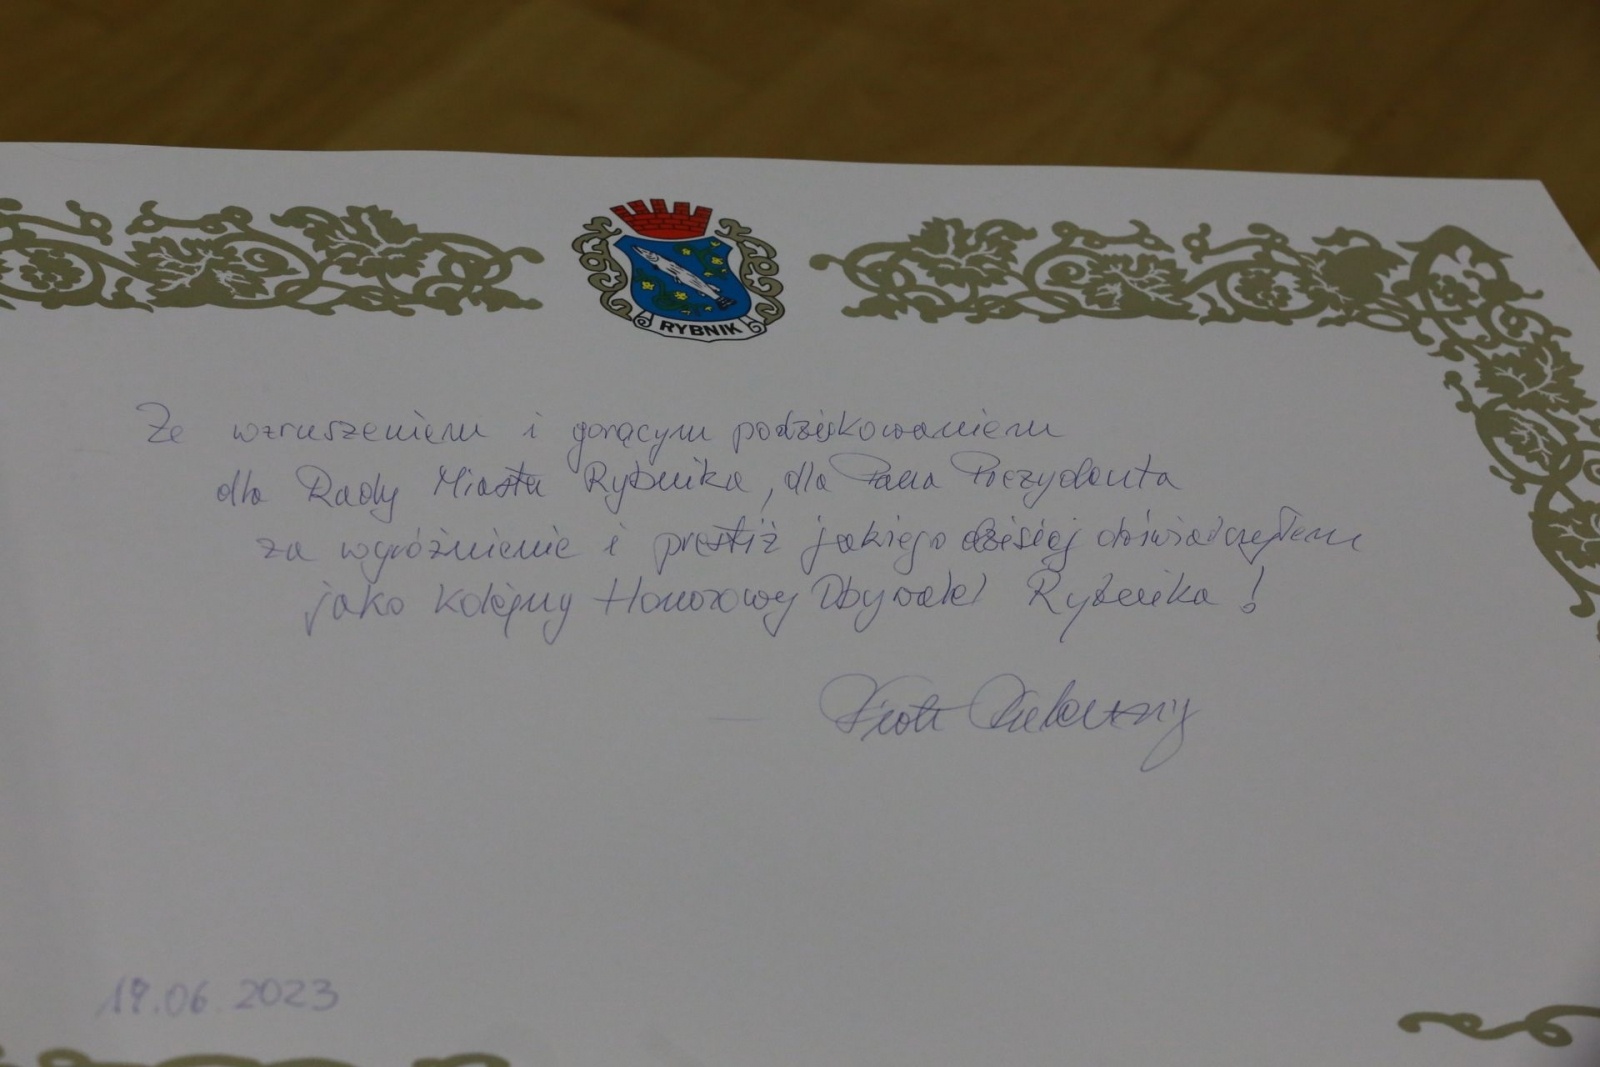 RYBNIK
Ze wzruszeniem i gorącym podziękowaniem
dla Rady Miasta Rybnika, dla Pana Prezydenta
za wyróżnienie i prestiż jakiego dzisiaj doświadczyłem
jako kolejny Honorowy Obywatel Rybnika!
Piotr
19.06.2023